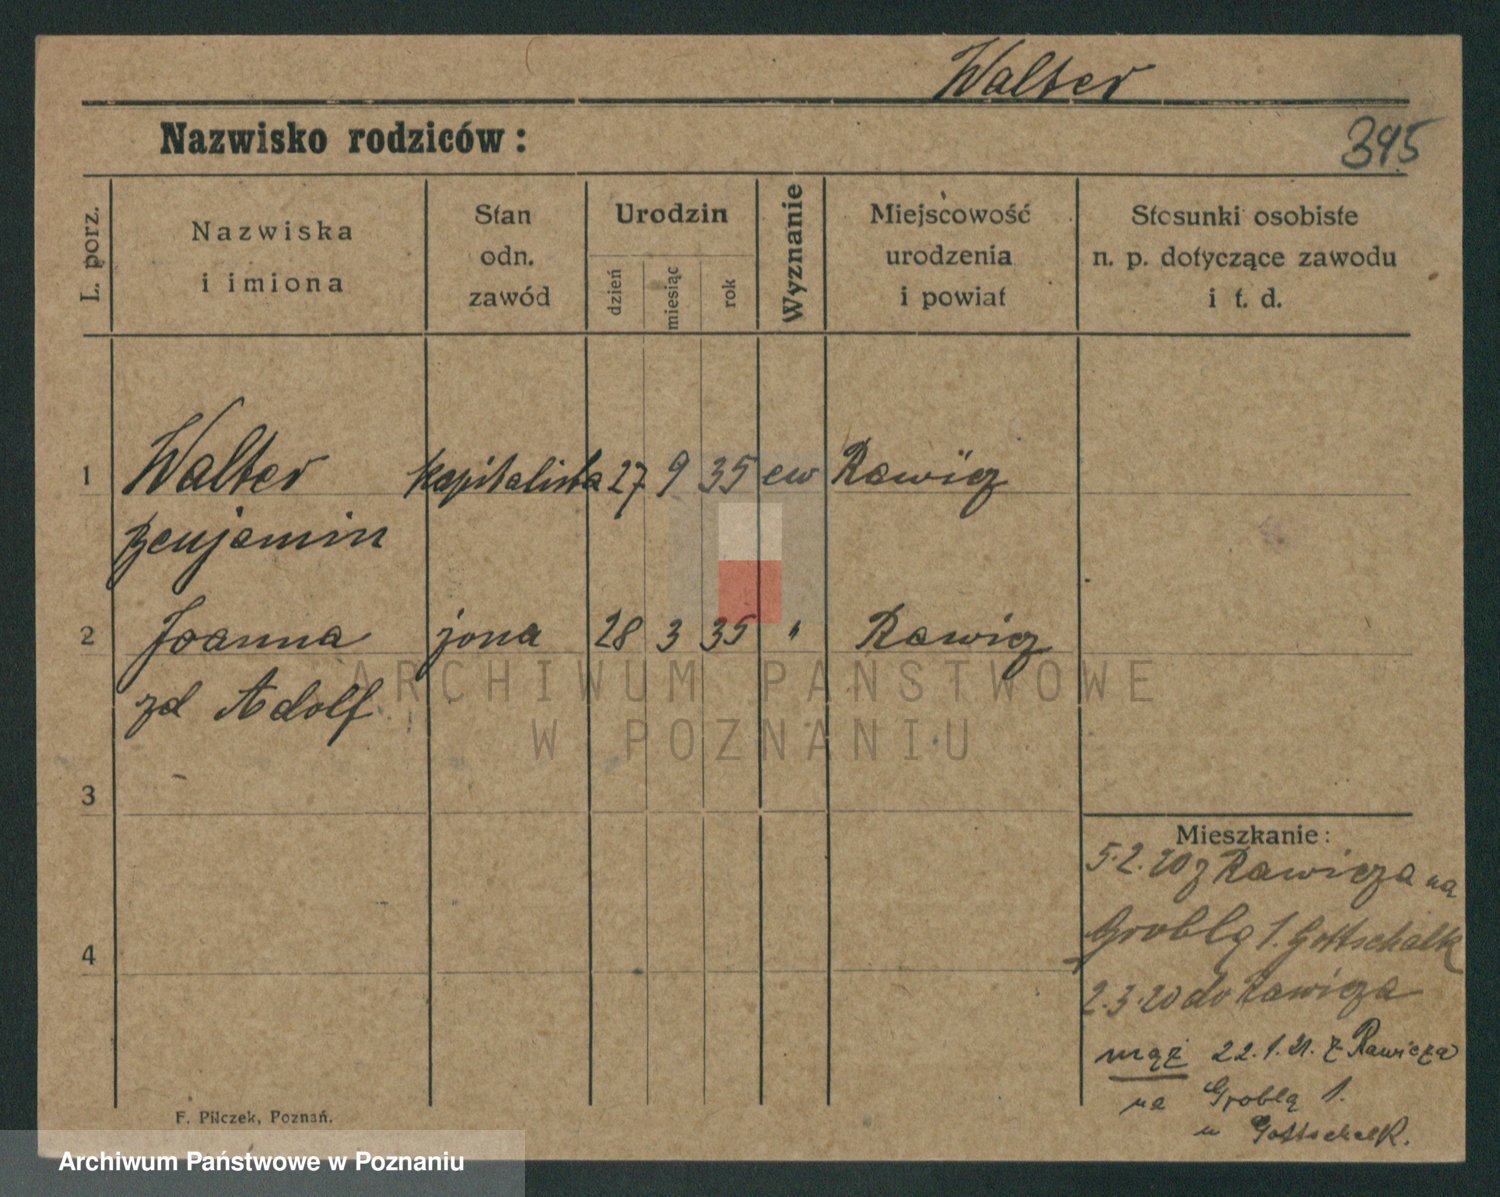 Walter
Nazwisko rodziców:
395
L. porz.
Nazwiska
i imiona
Stan
odn.
zawód
Urodzin
dzień
miesiąc
rok
Wyznanie
Miejscowość
urodzenia
i powiat
Stosunki osobiste
n. p. dotyczące zawodu
i t. d.
1 Walter kapitalista 27 9 35 ew Rawicz
Benjamin
2 Joanna żona 28 3 35 " Rawicz
zd Adolf
ARCHIWUM PAŃSTWOWE
W POZNANIU
3
Mieszkanie:
5.2.20 z Rawicza na
Groblę 1. Gottschalk
4
2.3.20 do Rawicza
mąż 22.1.21. z Rawicza
na Groblę 1.
u Gottschalk.
F. Pilczek, Poznań.
Archiwum Państwowe w Poznaniu